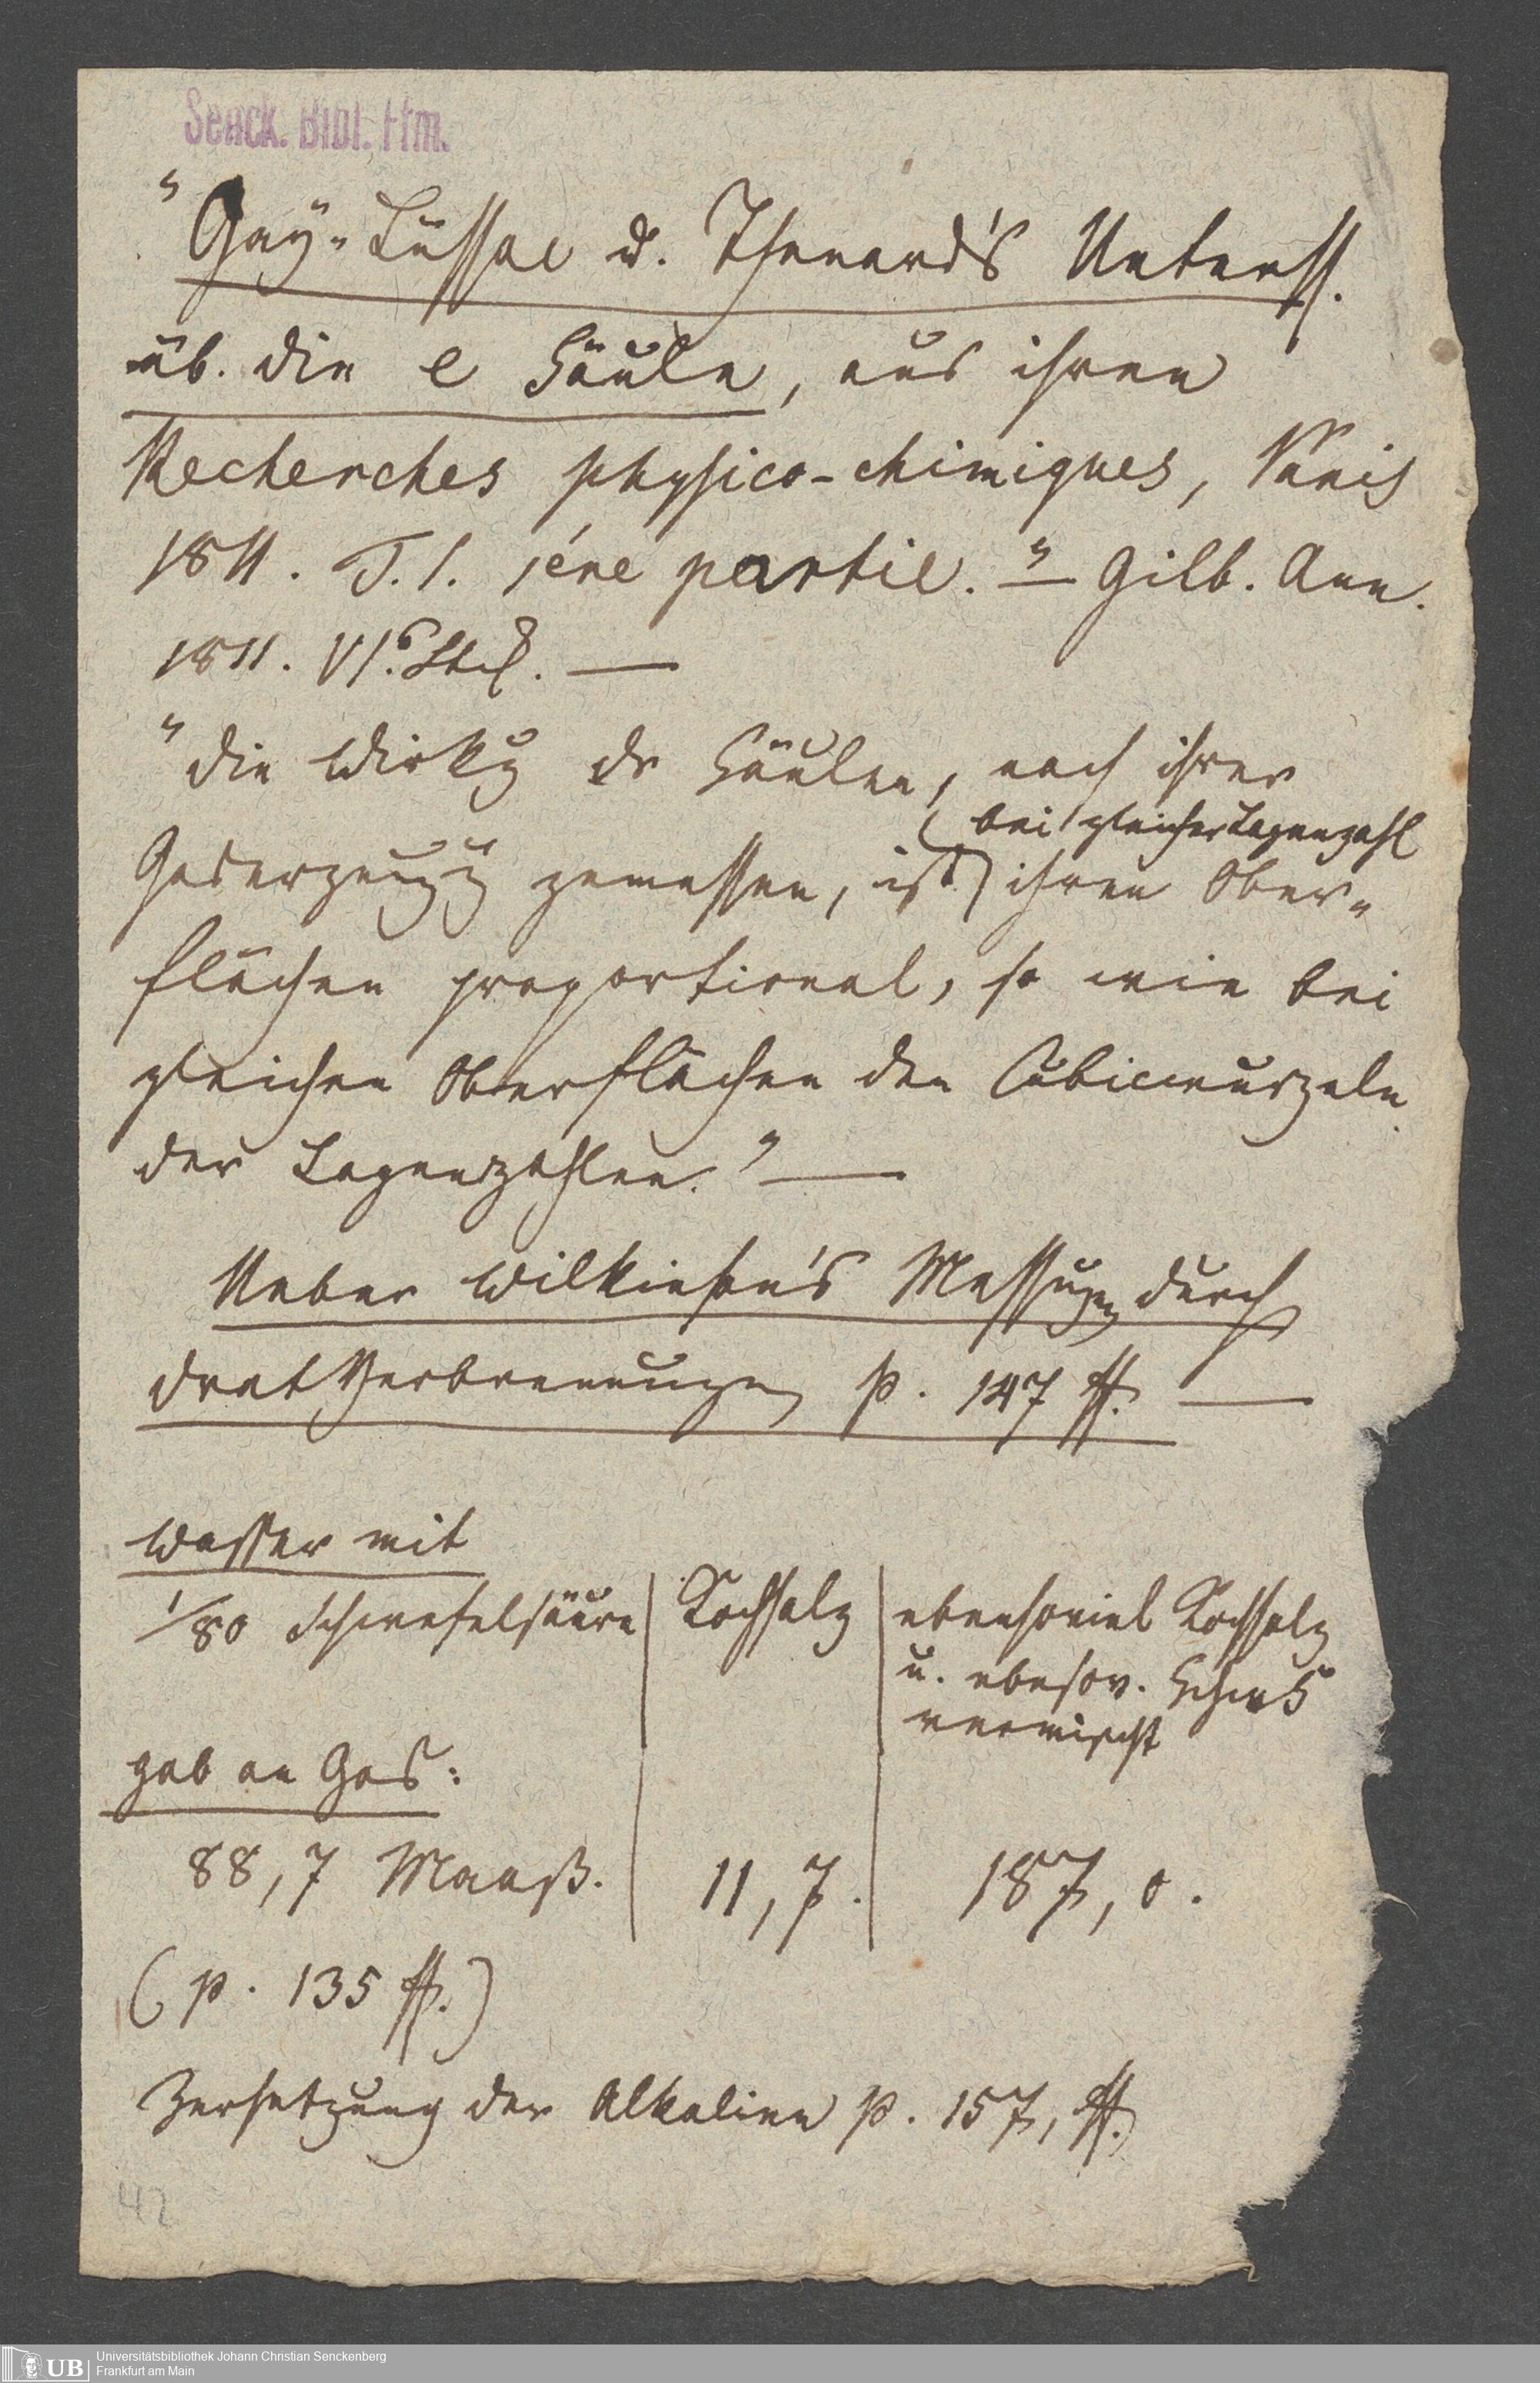 Senck. Bibl. Ffm.
"Gay-Lüssac u. Thenard's Unterss.
üb. die e Säule, aus ihren
Recherches physico-chimiques, Paris
1811. T. 1. 1ére partie." — Gilb. Ann.
1811. VI. Stck. —
"die Wirkg dr Säulen, nach ihrer
bei gleicher Lagenzahl
Gaserzeugg gemessen, ist ihren Ober-
flächen proportional, so wie bei
gleichen Oberflächen den Cubicwurzeln
der Lagenzahlen." —
Ueber Wilkinson's Messugen durch
Drat Verbrennungen p. 147 ff. —
Wasser mit
1/80 Schwefelsäure | Kochsalz | ebensoviel Kochsalz
u. ebensov. Schwf
vermischt
gab an Gas:
88,7 Maaß. | 11,7. | 187,0.
(p. 135 ff.)
Zersetzung der Alkalien p. 157, ff.
42
UB
Universitätsbibliothek Johann Christian Senckenberg
Frankfurt am Main